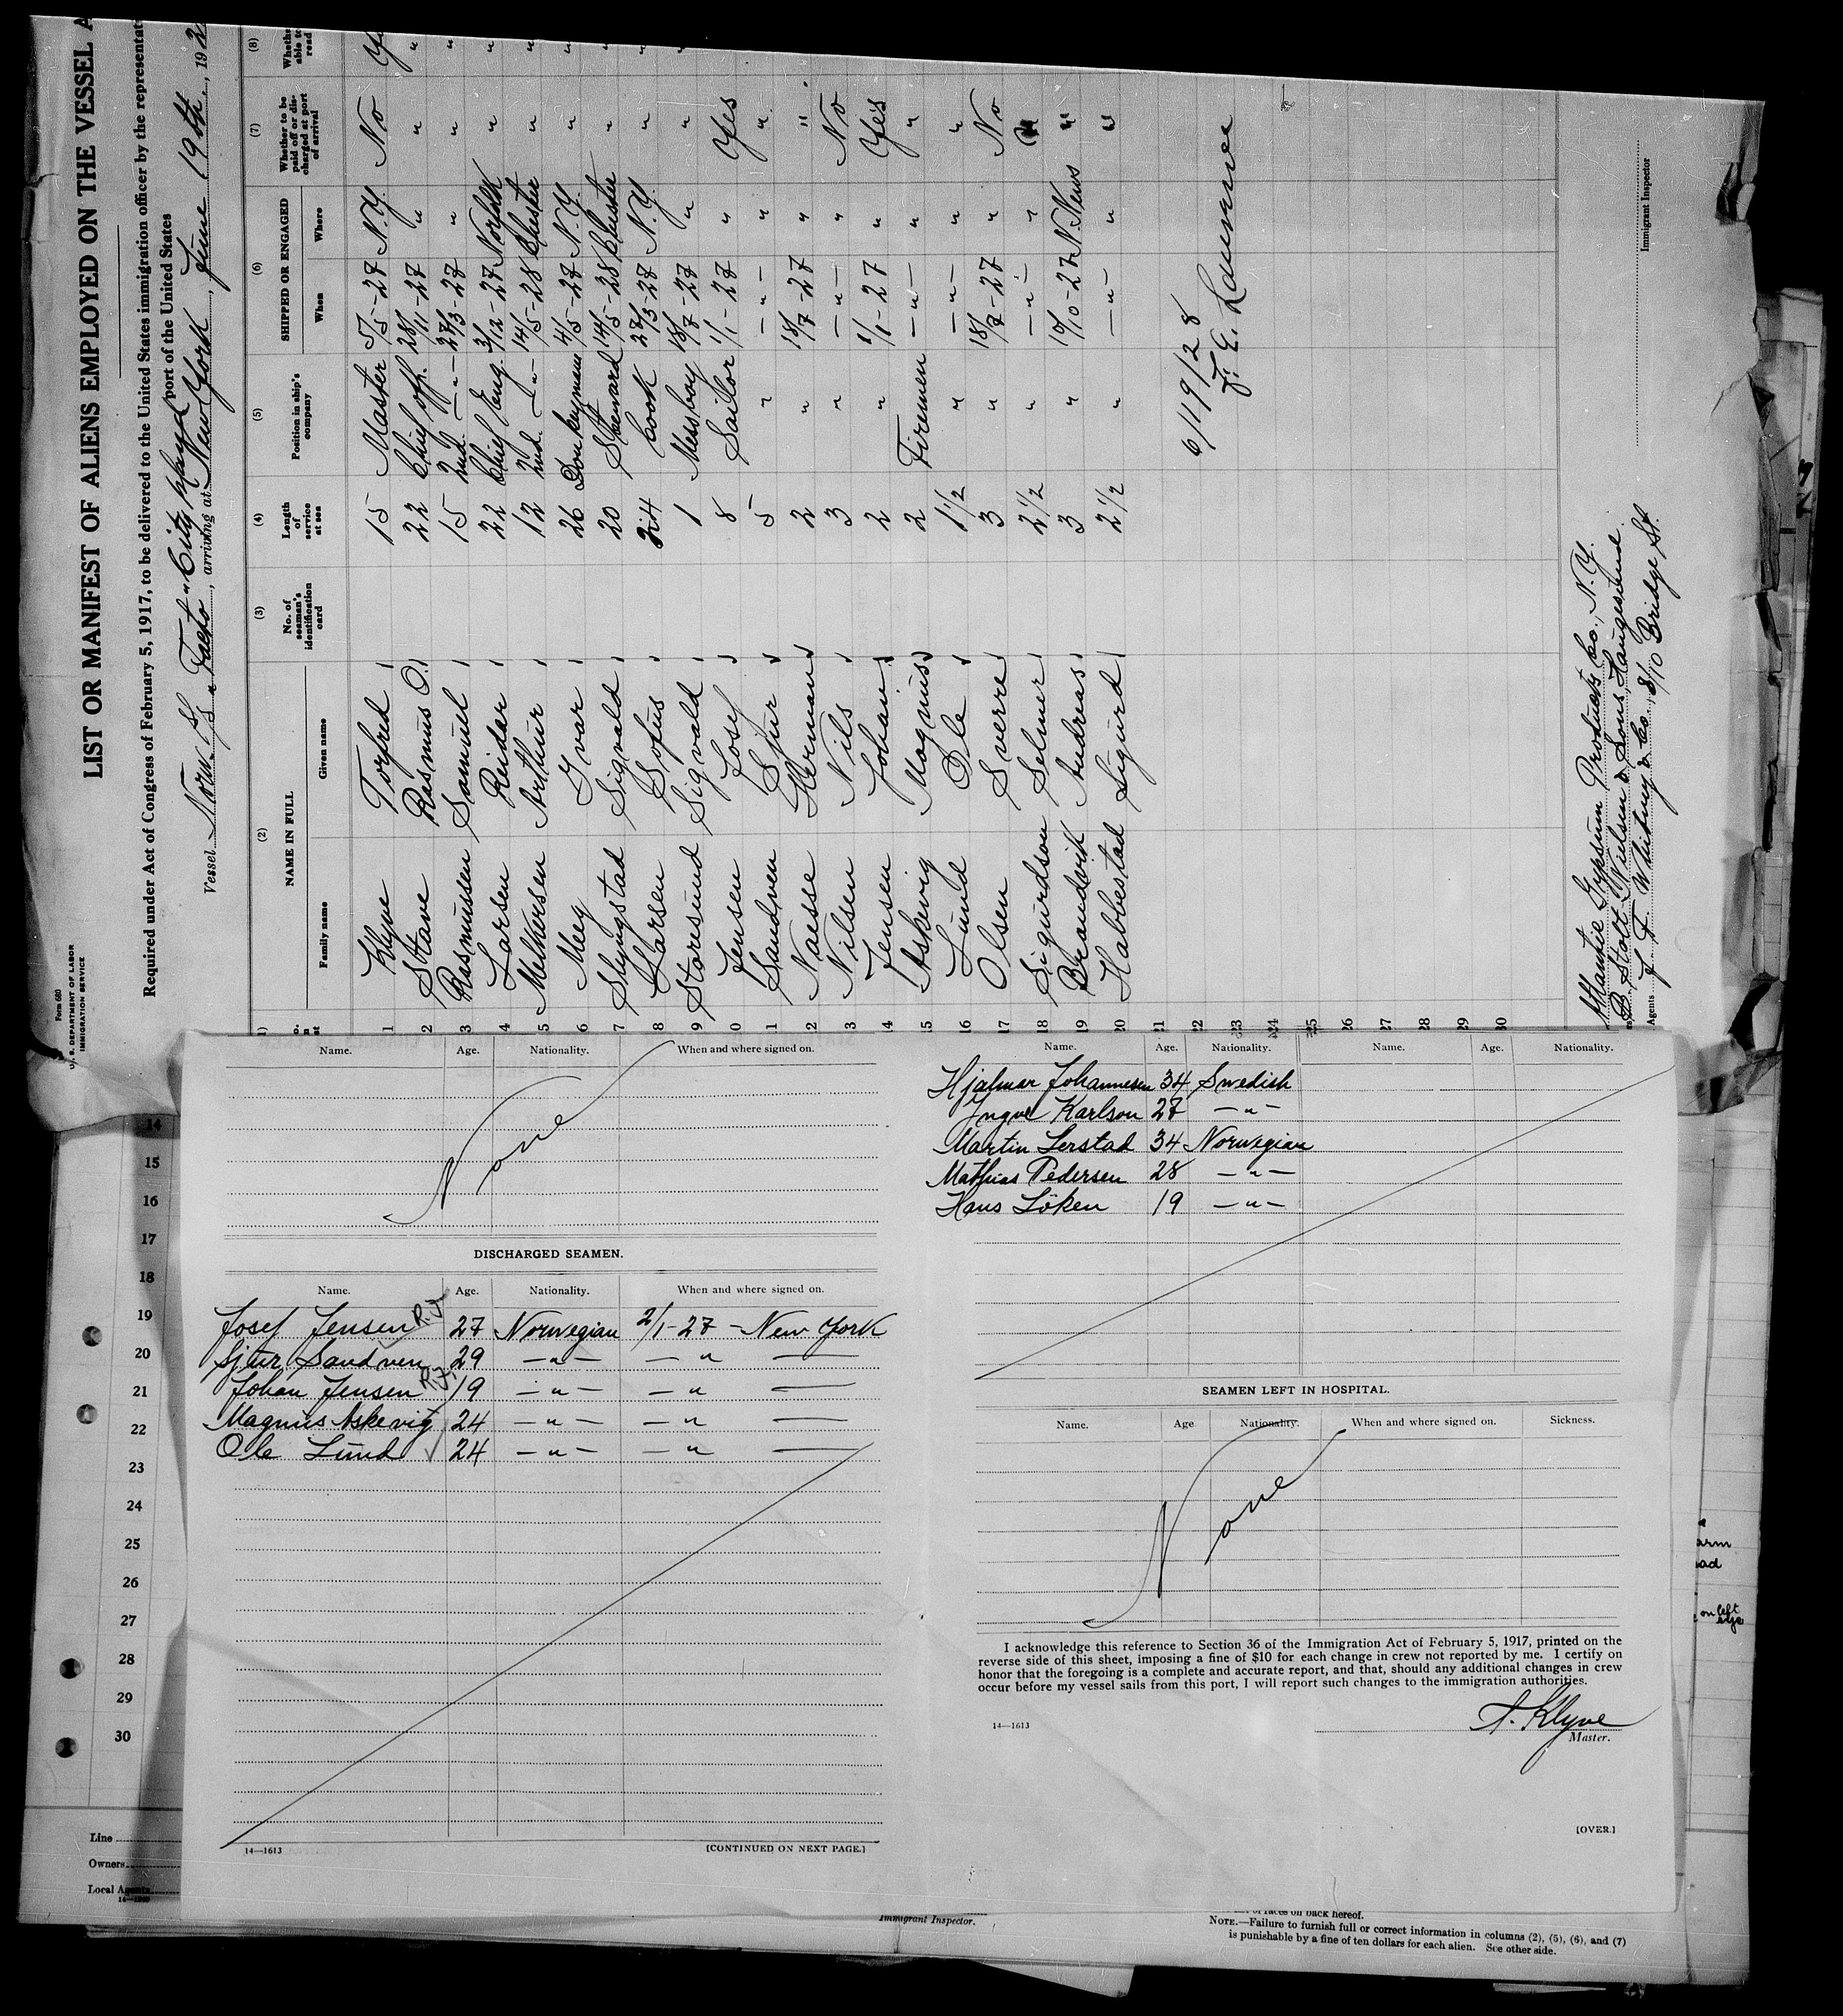 Form 680
U. S. DEPARTMENT OF LABOR
IMMIGRATION SERVICE
LIST OR MANIFEST OF ALIENS EMPLOYED ON THE VESSEL A
Required under Act of Congress of February 5, 1917, to be delivered to the United States immigration officer by the representat
port of the United States
Vessel Norw S/S "Facto", arriving at New York, June 19th, 192
(2) (3) (4) (5) (6) (7) (8)
NAME IN FULL No. of seaman's identification card Length of service at sea Position in ship's company SHIPPED OR ENGAGED Whether to be paid off or discharged at port of arrival
Family name Given name When Where
1 Klyve Torfred 15 Master 5/5-27 N.Y. No
2 Stave Rasmus O. 22 Chief off. 28/11-27 " "
3 Rasmussen Samuel 15 2nd. -"- 27/3-28 " "
4 Larsen Reidar 22 Chief Eng. 3/12-27 Norfolk "
5 Melkersen Arthur 12 2nd. -"- 14/5-28 Chester "
6 Meeg Ivar 26 Donkeyman 4/5-28 N.Y. "
7 Slyngstad Sigvald 20 Steward 14/5-28 Chester "
8 Larsen Sofus 24 Cook 27/3-28 N.Y. "
9 Storesund Sigvald 1 Messboy 18/7-27 " "
0 Jensen Josef 8 Sailor 1/1-27 " Yes
1 Sandven Sjur 5 " -"- " "
2 Naesse Herman 2 " 18/7-27 " "
3 Nilsen Nils 3 " -"- " No
14 Jensen Johan 2 " 1/1-27 " Yes
15 Askevig Magnus 2 Firemen -"- " "
16 Lund Ole 1 1/2 " -"- " "
17 Olsen Sverre 3 " 18/7-27 " No
18 Sigurdson Selmer 2 1/2 " -"- " "
19 Brandsvik Andreas 3 " 10/10-27 N.News "
20 Habbestad Sigurd 2 1/2 " -"- " "
21
22 6/19/28
23 F. E. Launnee
24
25
26
27
28
29
30
Atlantic Gypsum Products Co., N.Y.
B. Stolt Nielsen & Sons, Haugesund.
Agents J. F. Whitney & Co., 8/10 Bridge St.
Immigrant Inspector
Name. Age. Nationality. When and where signed on.
None
DISCHARGED SEAMEN.
Name. Age. Nationality. When and where signed on.
Josef Jensen 27 Norwegian 2/1-27 - New York
Sjur Sandven 29 -"- - " -
Johan Jensen 19 -"- - " -
Magnus Askevig 24 -"- - " -
Ole Lund 24 -"- - " -
14—1613
[CONTINUED ON NEXT PAGE.]
Name. Age. Nationality. Name. Age. Nationality.
Hjalmar Johannesen 34 Swedish
Yngve Karlson 27 -"-
Martin Lerstad 34 Norwegian
Mathias Pedersen 28 -"-
Hans Löken 19 -"-
SEAMEN LEFT IN HOSPITAL.
Name. Age Nationality. When and where signed on. Sickness.
None
I acknowledge this reference to Section 36 of the Immigration Act of February 5, 1917, printed on the
reverse side of this sheet, imposing a fine of $10 for each change in crew not reported by me. I certify on
honor that the foregoing is a complete and accurate report, and that, should any additional changes in crew
occur before my vessel sails from this port, I will report such changes to the immigration authorities.
14—1613
A. Klyve
Master.
[OVER.]
14
15
16
17
18
19
20
21
22
23
24
25
26
27
28
29
30
Line
Owners
Local Agents
Immigrant Inspector.
on back hereof.
NOTE.—Failure to furnish full or correct information in columns (2), (5), (6), and (7)
is punishable by a fine of ten dollars for each alien. See other side.
arm
on left
eye